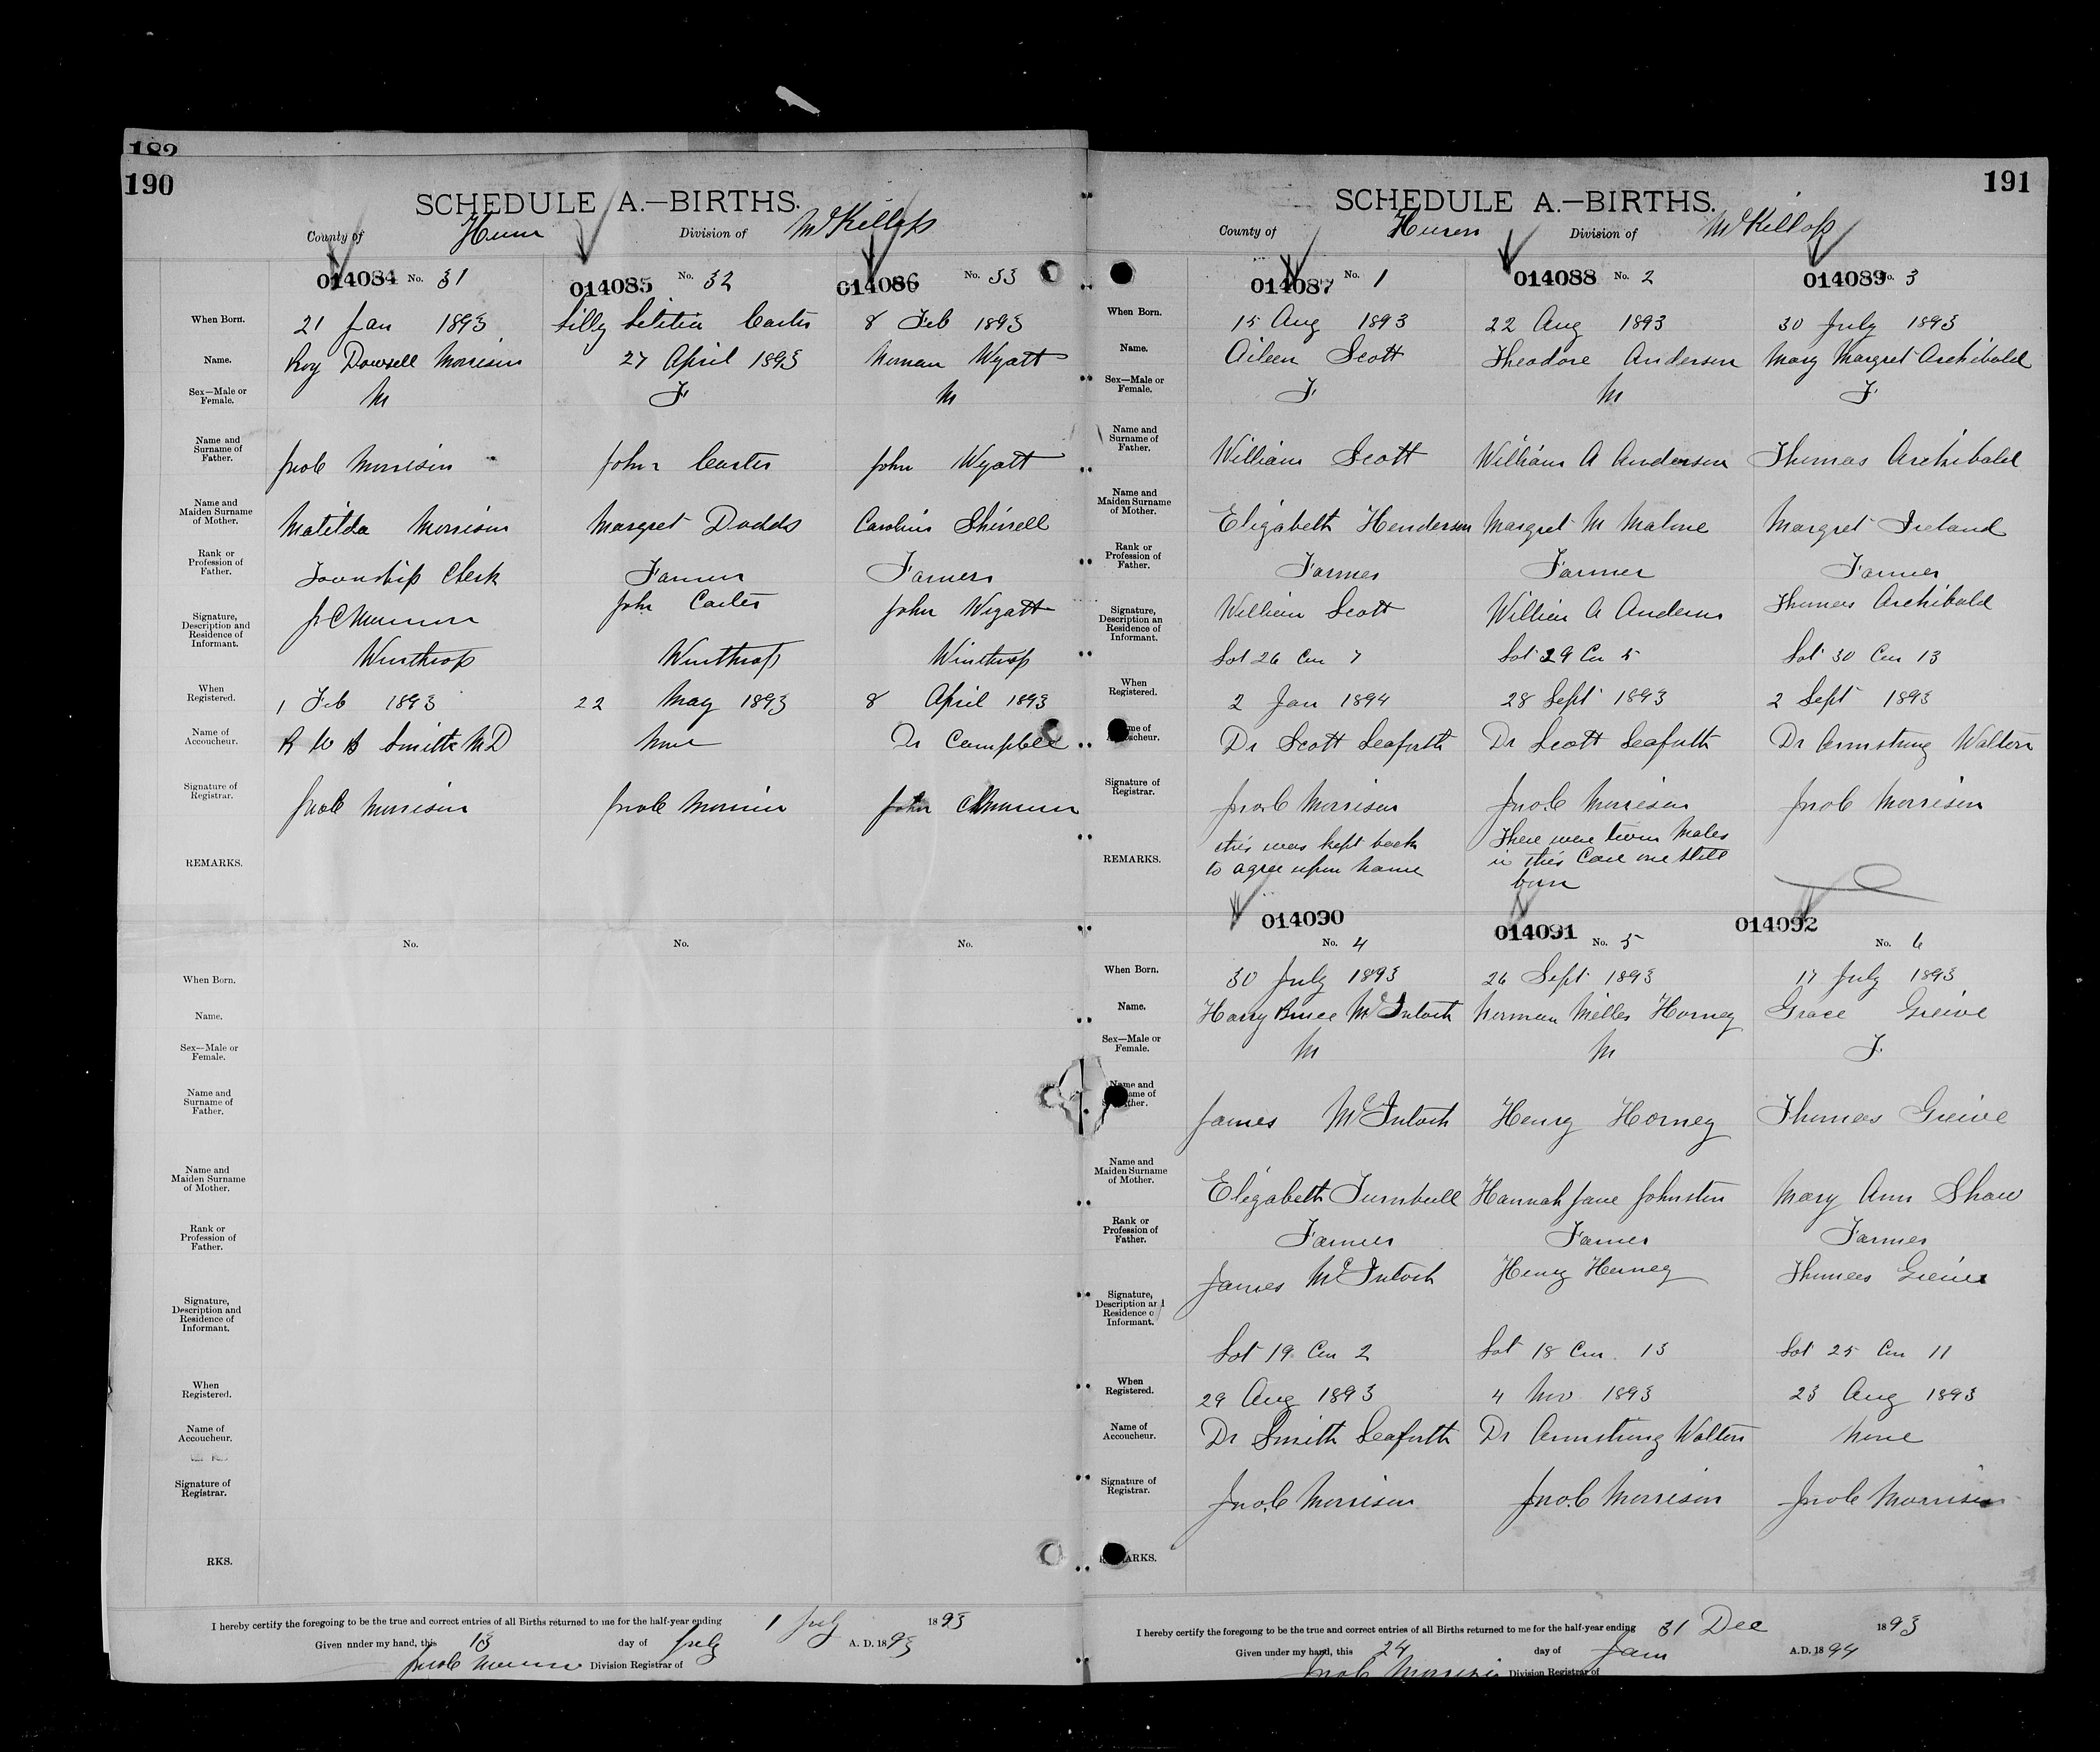 182
190
SCHEDULE A.—BIRTHS.
County of Huron Division of McKillop
014084 No. 31 014085 No. 32 014086 No. 33
When Born. 21 Jan 1893 Lilly Letitia Carter 8 Feb 1893
Name. Roy Dowsell Morrison 27 April 1893 Norman Wyatt
Sex—Male or Female. M F M
Name and Surname of Father. Jno C Morrison John Carter John Wyatt
Name and Maiden Surname of Mother. Matilda Morrison Margret Dodds Caroline
Rank or Profession of Father. Township Clerk Farmer Farmer
Signature, Description and Residence of Informant. J. C Morrison John Carter John Wyatt
Winthrop Winthrop Winthrop
When Registered. 1 Feb 1893 22 May 1893 8 April 1893
Name of Accoucheur. R W B Smith MD None Dr Campbell
Signature of Registrar. Jno C Morrison Jno C Morrison John C Morrison
REMARKS.
No. No. No.
When Born.
Name.
Sex—Male or Female.
Name and Surname of Father.
Name and Maiden Surname of Mother.
Rank or Profession of Father.
Signature, Description and Residence of Informant.
When Registered.
Name of Accoucheur.
Signature of Registrar.
RKS.
I hereby certify the foregoing to be the true and correct entries of all Births returned to me for the half-year ending 1 July 1893
Given under my hand, this 13 day of July A. D. 1893
Jno C Morrison Division Registrar of
191
SCHEDULE A.—BIRTHS.
County of Huron Division of McKillop
014087 No. 1 014088 No. 2 014089 No. 3
When Born. 15 Aug 1893 22 Aug 1893 30 July 1893
Name. Aileen Scott Theodore Anderson Mary Margret Archibald
Sex—Male or Female. F M F
Name and Surname of Father. William Scott William A Anderson Thomas Archibald
Name and Maiden Surname of Mother. Elizabeth Henderson Margret M Malone Margret Ireland
Rank or Profession of Father. Farmer Farmer Farmer
Signature, Description an Residence of Informant. William Scott William A Anderson Thomas Archibald
Lot 26 Con 7 Lot 29 Con 5 Lot 30 Con 13
When Registered. 2 Jan 1894 28 Sept 1893 2 Sept 1893
me of cheur. Dr Scott Seaforth Dr Scott Seaforth Dr Armstrong Walton
Signature of Registrar. Jno C Morrison Jno C Morrison Jno C Morrison
REMARKS. this was kept back There were twin Males
to agree upon name in this Case one still
born
014090 014091 014092
No. 4 No. 5 No. 6
When Born. 30 July 1893 26 Sept 1893 17 July 1893
Name. Harry Bruce McIntosh Norman Milles Horney Grace Greive
Sex—Male or Female. M M F
Name and ame of ther. James McIntosh Henry Horney Thomas Greive
Name and Maiden Surname of Mother. Elizabeth Turnbull Hannah Jane Johnston Mary Ann Shaw
Rank or Profession of Father. Farmer Farmer Farmer
Signature, Description and Residence o Informant. James McIntosh Henry Horney Thomas Greive
Lot 19 Con 2 Lot 18 Con. 13 Lot 25 Con 11
When Registered. 29 Aug 1893 4 Nov 1893 23 Aug 1893
Name of Accoucheur. Dr Smith Seaforth Dr Armstrong Walton None
Signature of Registrar. Jno. C Morrison Jno. C Morrison Jno C Morrison
ARKS.
I hereby certify the foregoing to be the true and correct entries of all Births returned to me for the half-year ending 31 Dec 1893
Given under my hand, this 24 day of Jan A.D. 1894
Jno C Morrison Division Registrar of